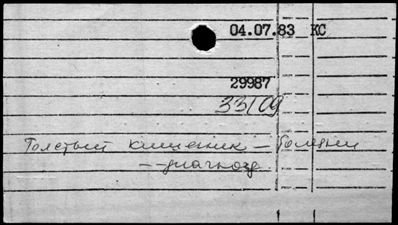 04.07.83 КС
29987
33109
Толстый кишечник — болезни
— — диагноз